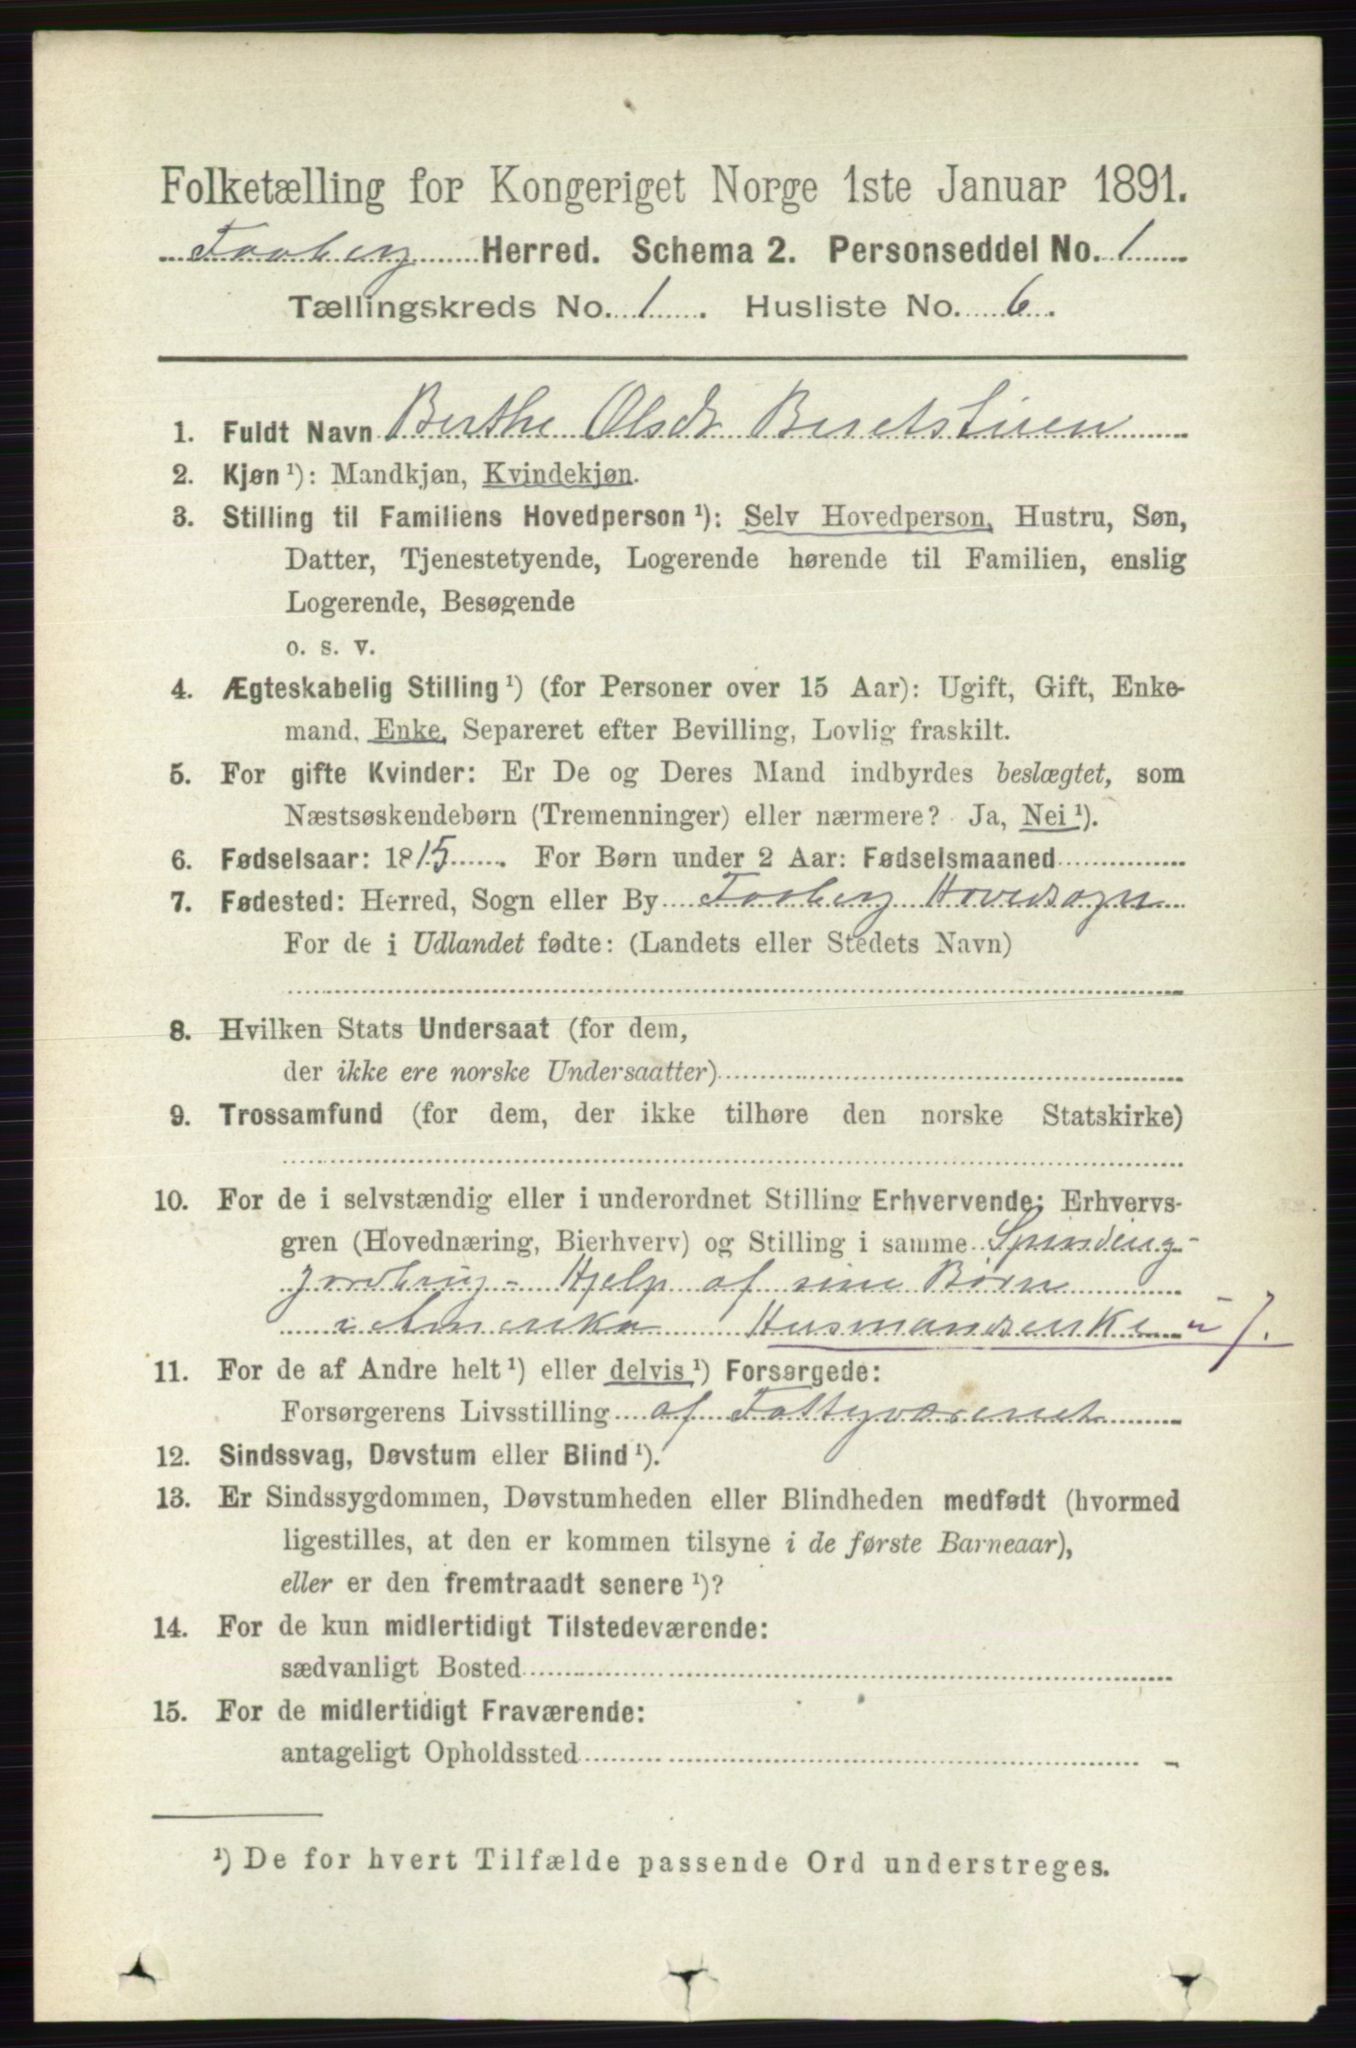 Folketælling for Kongeriget Norge 1ste Januar 1891.
Faaberg Herred. Schema 2. Personseddel No. 1
Tællingskreds No. 1. Husliste No. 6.
1. Fuldt Navn Berthe Olsdr
2. Kjøn ¹): Mandkjøn, Kvindekjøn.
3. Stilling til Familiens Hovedperson ¹): Selv Hovedperson, Hustru, Søn,
Datter, Tjenestetyende, Logerende hørende til Familien, enslig
Logerende, Besøgende
o. s. v.
4. Ægteskabelig Stilling ¹) (for Personer over 15 Aar): Ugift, Gift, Enke-
mand, Enke, Separeret efter Bevilling, Lovlig fraskilt.
5. For gifte Kvinder: Er De og Deres Mand indbyrdes beslægtet, som
Næstsøskendebørn (Tremenninger) eller nærmere? Ja, Nei ¹).
6. Fødselsaar: 1815. For Børn under 2 Aar: Fødselsmaaned
7. Fødested: Herred, Sogn eller By Faaberg Hovedsogn
For de i Udlandet fødte: (Landets eller Stedets Navn)
8. Hvilken Stats Undersaat (for dem,
der ikke ere norske Undersaatter)
9. Trossamfund (for dem, der ikke tilhøre den norske Statskirke)
10. For de i selvstændig eller i underordnet Stilling Erhvervende: Erhvervs-
gren (Hovednæring, Bierhverv) og Stilling i samme Spinding-
Jordbrug- Hjelp af sine Børn
i Amerika Husmandsenke u J.
11. For de af Andre helt ¹) eller delvis ¹) Forsørgede:
Forsørgerens Livsstilling af Fattigvæsenet
12. Sindssvag, Døvstum eller Blind ¹).
13. Er Sindssygdommen, Døvstumheden eller Blindheden medfødt (hvormed
ligestilles, at den er kommen tilsyne i de første Barneaar),
eller er den fremtraadt senere ¹)?
14. For de kun midlertidigt Tilstedeværende:
sædvanligt Bosted
15. For de midlertidigt Fraværende:
antageligt Opholdssted
¹) De for hvert Tilfælde passende Ord understreges.